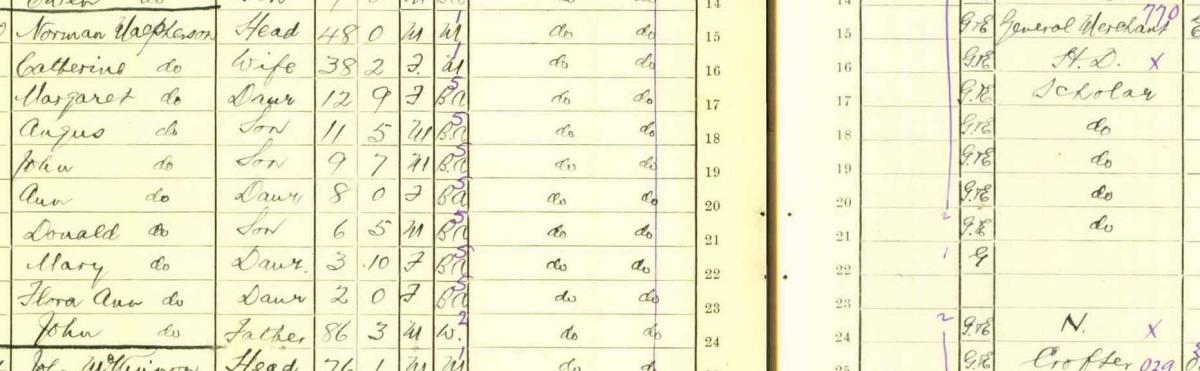 Owen do Son M Ba 14 14
Norman Macpherson Head 48 0 M M 1 do do 15 15 G&E General Merchant 770
Catherine do Wife 38 2 F M 1 do do 16 16 G&E H.D. x
Margaret do Daur 12 9 F Ba 5 do do 17 17 G&E Scholar
Angus do Son 11 5 M Ba 5 do do 18 18 G&E do
John do Son 9 7 M Ba 5 do do 19 19 G&E do
Ann do Daur 8 0 F Ba 5 do do 20 20 G&E do
Donald do Son 6 5 M Ba 5 do do 21 2 21 G&E do
Mary do Daur. 3 10 F Ba 5 do do 22 1 22 G
Flora Ann do Daur 2 0 F Ba 5 do do 23 23
John do Father 86 3 M W. 2 do do 24 2 24 G&E N. x
Head 76 1 M M 1 do do 25 G&E Crofter 029